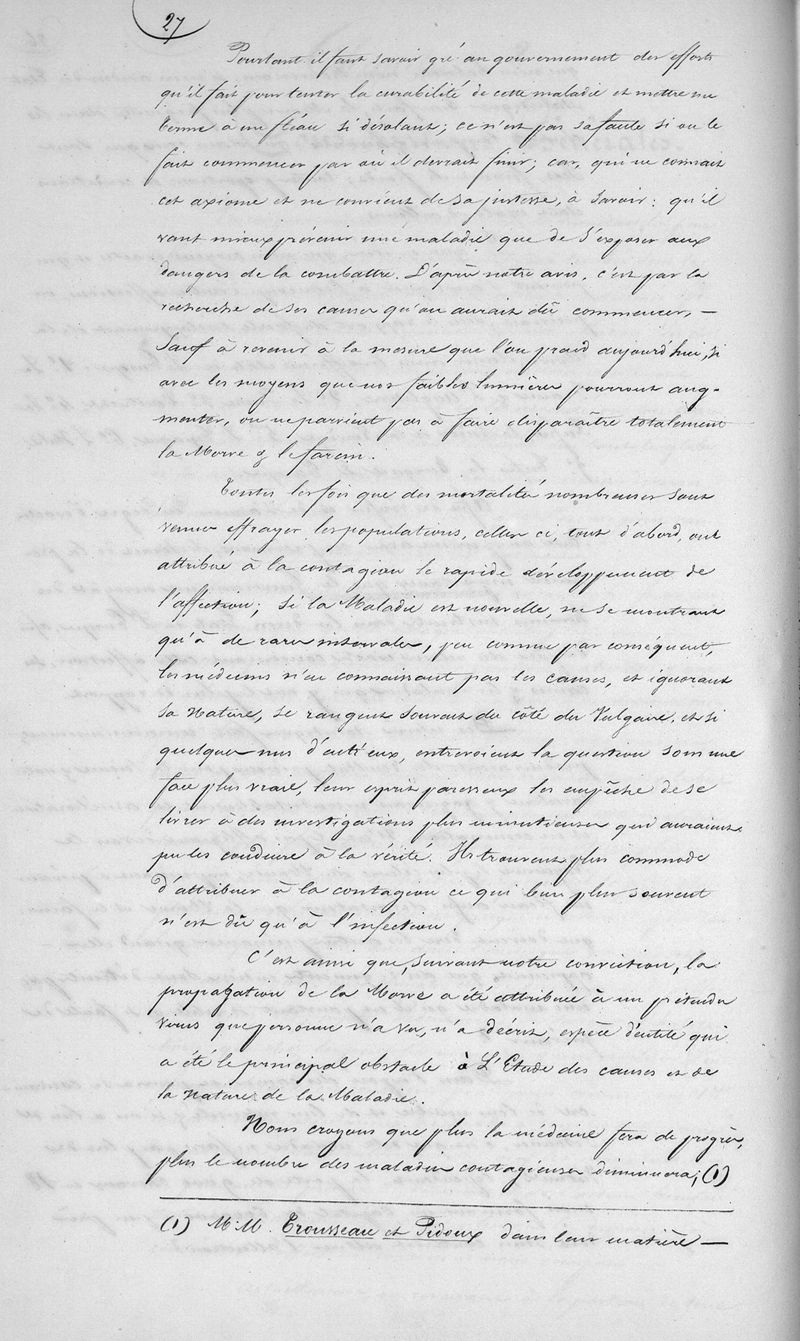 27
Pourtant il faut savoir gré au gouvernement des efforts
qu'il fait pour tenter la curabilité de cette maladie et mettre un
terme à un fléau si désolant; ce n'est pas sa faute si on le
fait commencer par où il devrait finir; car, qui ne connait
cet axiome et ne convient de sa justesse, à savoir: qu'il
vaut mieux prévenir une maladie que de s'exposer aux
dangers de la combattre. D'après notre avis, c'est par la
recherche de ses causes qu'on aurait dû commencer, —
Sauf à revenir à la mesure que l'on prend aujourd'hui, si
avec les moyens que nos faibles lumières pourront aug-
menter, on ne parvient pas à faire disparaître totalement
la Morve & le farcin.
Toutes les fois que des mortalités nombreuses sont
venues effrayer les populations, celles ci, tout d'abord, ont
attribué à la contagion le rapide développement de
l'affection; Si la Maladie est nouvelle, ne se montrant
qu'à de rares intervales, peu connue par conséquent,
les médecins n'en connaissant pas les causes, et ignorant
sa Nature, se rangent souvent du côté du Vulgaire, et si
quelques uns d'entr'eux, entrevoient la question sous une
face plus vraie, leur esprit paresseux les empêche de se
livrer à des investigations plus minutieuses qui auraient
pu les conduire à la vérité. Ils trouvent plus commode
d'attribuer à la contagion ce qui bien plus souvent
n'est dû qu'à l'infection.
C'est ainsi que, suivant notre conviction, la
propagation de la Morve a été attribuée à un prétendu
virus que personne n'a vu, n'a décrit, espèce d'entité qui
a été le principal obstacle à L'Etude des causes et de
la Nature de la Maladie.
Nous croyons que plus la médecine fera de progrès,
plus le nombre des maladies contagieuses diminuera; (1)
(1) M.M. Trousseau et Pidoux dans leur matière —